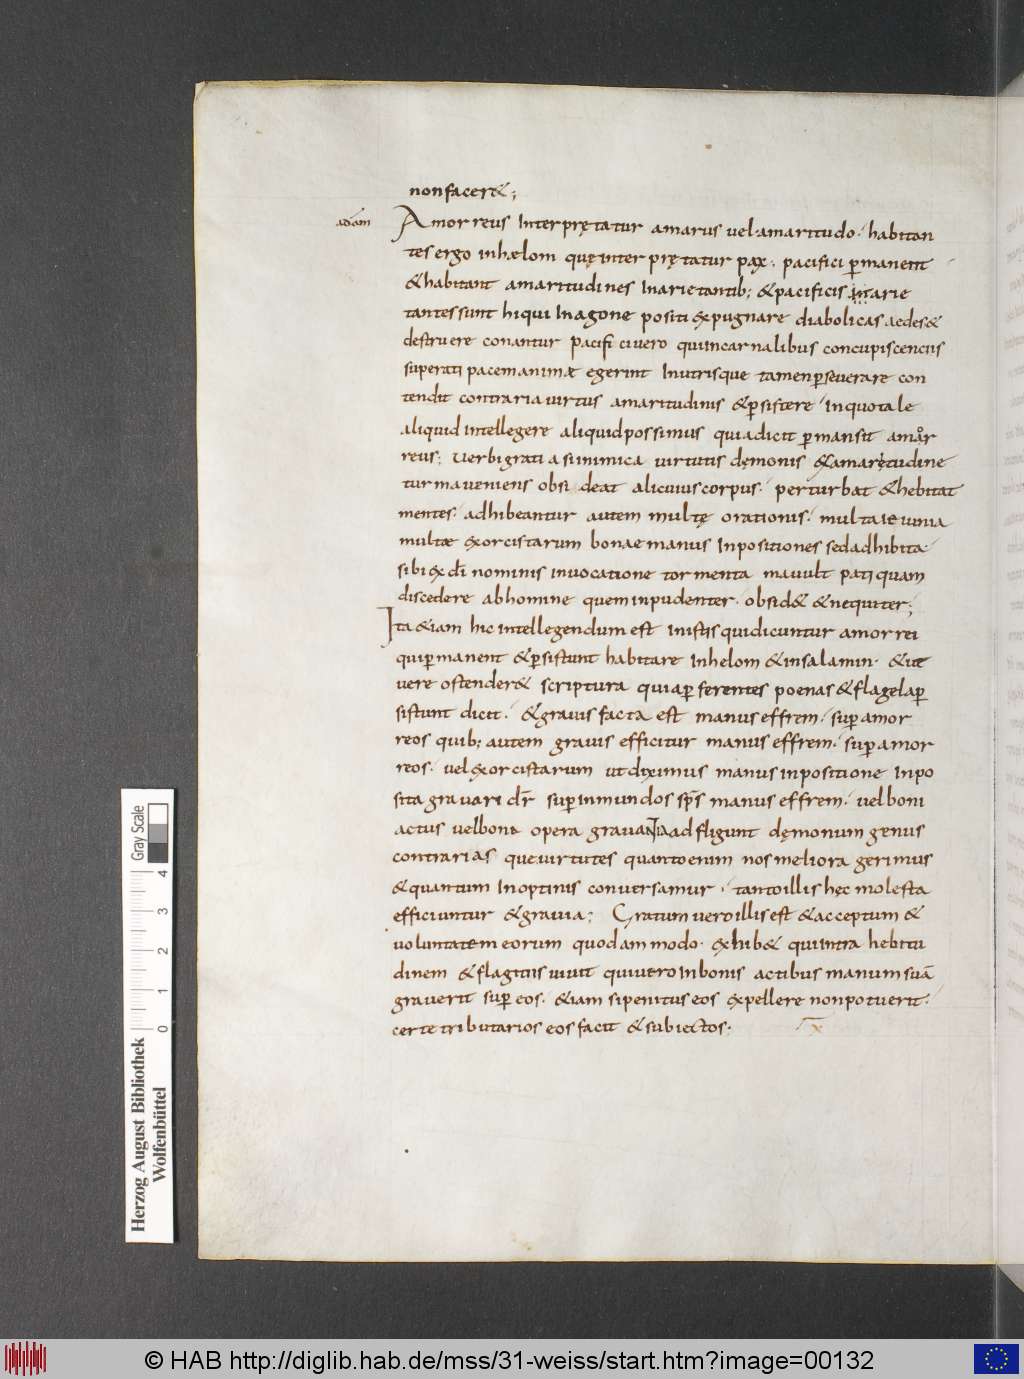 non facer&;
adam
Amorreus Interprętatur amarus uel amaritudo. habitan
tes ergo inhælom quę interprętatur pax. pacifici ꝑmanent
&habitant amaritudines Inarietantib; &pacificis inarie
tantes sunt hi qui Inagone positi expugnare diabolicas aedes &
destruere conantur pacifici uero quiincarnalibus concupiscenciis
superati pacem animæ egerint Inutrisque tamen ꝑseuerare con
tendit contraria uirtus amaritudinis &ꝑsistere inquo tale
aliquid intellegere aliquid possimus quia dicit ꝑmansit amor
reus; uerbi gratia si inimica uirtutis dęmonis examarętudine
turma ueniens obsideat alicuius corpus. perturbat &hebitat
mentes. adhibeantur autem multę orationis. multa ieiunia
multæ exorcistarum bonae manus Inpositiones sed adhibita
sibi ex dī nominis inuocatione tormenta mauult pati quam
discedere ab homine quem inpudenter. obsid& &nequiter;
Ita &iam hic intellegendum est inistis qui dicuntur amorrei
qui ꝑmanent &ꝑsistunt habitare inhelom &insalamin. &ut
uere ostender& scriptura quia ꝑferentes poenas &flagela ꝑ
sistunt dicit. &grauis facta est manus effrem. suꝑ amor
reos quib; autem grauis efficitur manus effrem. suꝑ amor
reos. uel exorcistarum ut diximus manus inpositione inpo
sita grauari dr̄ suꝑ inmundos sp̄s manus effrem. uel boni
actus uel bona opera grauania adfligunt dęmonum genus
contrarias que uirtutes quanto enim nos meliora gerimus
&quantum Inoptinis conuersamur. tanto illis hęc molesta
efficiuntur &grauia; Gratum uero illis est &acceptum &
uoluntatem eorum quodam modo. exhib& qui intra hebitu
dinem &flagitiis uiuit qui uero Inbonis actibus manum suā
grauerit suꝑ eos. &iam si penitus eos expellere non potuerit.
certe tributarios eos facit &subiectos.
Herzog August Bibliothek
Wolfenbüttel
0 1 2 3 4
Gray Scale
© HAB http://diglib.hab.de/mss/31-weiss/start.htm?image=00132